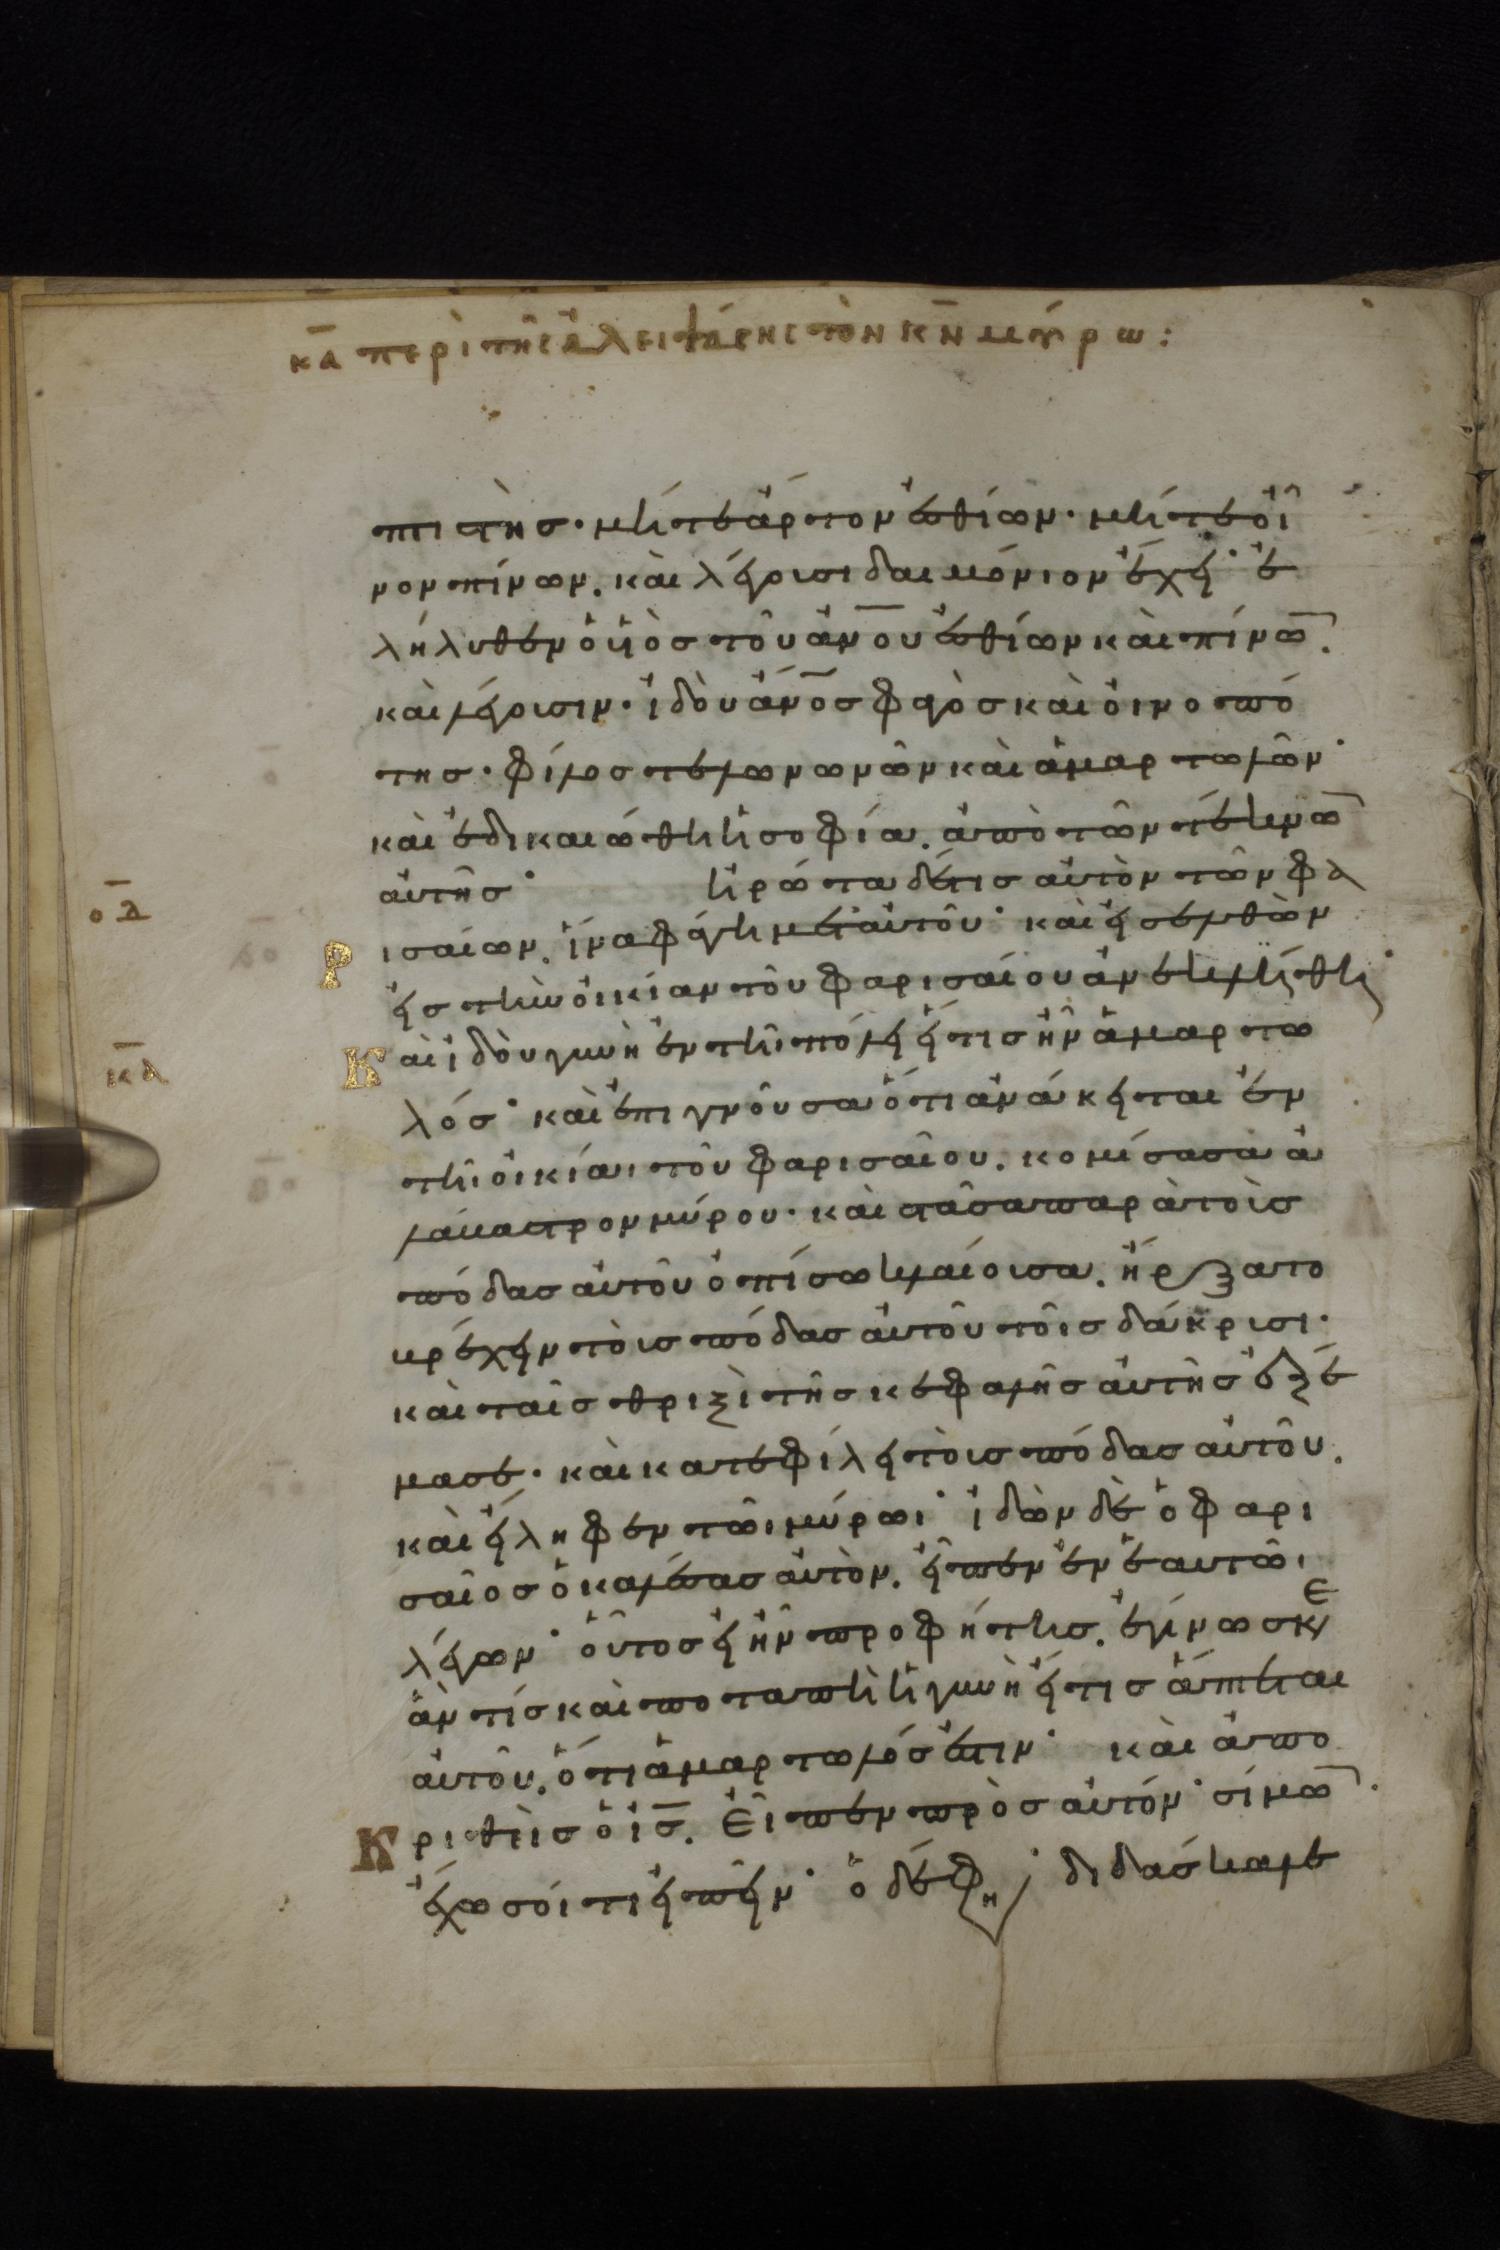 κ̅α̅ περὶ τῆς ἀλειψάσης τὸν κ̅ν̅ μύρω:
πτιστὴσ· μήτε ἄρτον ἐσθίων· μήτε οἶ
νον πίνων. καὶ λέγουσι δαιμόνιον ἔχει· ἐ
λήλυθεν ὁ υἱὸσ τοῦ ἀν̅ο̅υ ἐσθίων καὶ πίνω̅.
καὶ λέγουσιν· ἰδοὺ ἄν̅ο̅σ φαγὸσ καὶ οἰνοπό
τησ· φίλοσ τελωνωνῶν καὶ ἁμαρτωλῶν·
καὶ ἐδικαιώθη ἡ σοφία. ἀπὸ τῶν τέκνω̅
αὐτῆσ· ἠρώτα δέ τισ αὐτὸν τῶν φα
ο̅δ̅
ρισαίων. ἵνα φάγη μετ' αὐτοῦ· καὶ εἰσελθὼν
εἰσ τὴν οἰκίαν τοῦ φαρισαίου ἀνεκλήθη·
κ̅α̅
Καὶ ἰδοὺ γυνὴ ἐν τῆ πόλει ἥτισ ἦν ἁμαρτω
λόσ· καὶ ἐπιγνοῦσα ὅτι ἀνάκειται ἐν
τῆ οἰκίαι τοῦ φαρισαῖου. κομίσασα ἀ
λάβαστρον μύρου· καὶ στᾶσα παρὰ τοὺσ
πόδασ αὐτοῦ ὀπίσω κλαίουσα. ἤρξατο
βρέχειν τοὺσ πόδασ αὐτοῦ τοῖσ δάκρυσι·
καὶ ταῖσ θριξὶ τῆσ κεφαλῆσ αὐτῆσ ἐξέ
μασε· καὶ κατεφίλει τοὺσ πόδασ αὐτοῦ.
καὶ ἤλειφεν τῶι μύρωι· ἰδὼν δὲ ὁ φαρι
σαῖοσ ὁ καλέσασ αὐτὸν. εἶπεν ἐν ἑαυτῶι
λέγων· οὗτοσ εἰ ἦν προφήτησ. ἐγίνωσκε
ἂν τίσ καὶ ποταπὴ ἡ γυνὴ ἥτισ ἅπτεται
αὐτοῦ. ὅτι ἁμαρτωλόσ ἐστιν· καὶ ἀπο
Κριθεὶσ ὁ ι̅σ̅. Εἶπεν πρὸσ αὐτόν· σίμω̅·
ἔχω σοί τι εἰπεῖν· ὁ δέ φη· διδάσκαλε